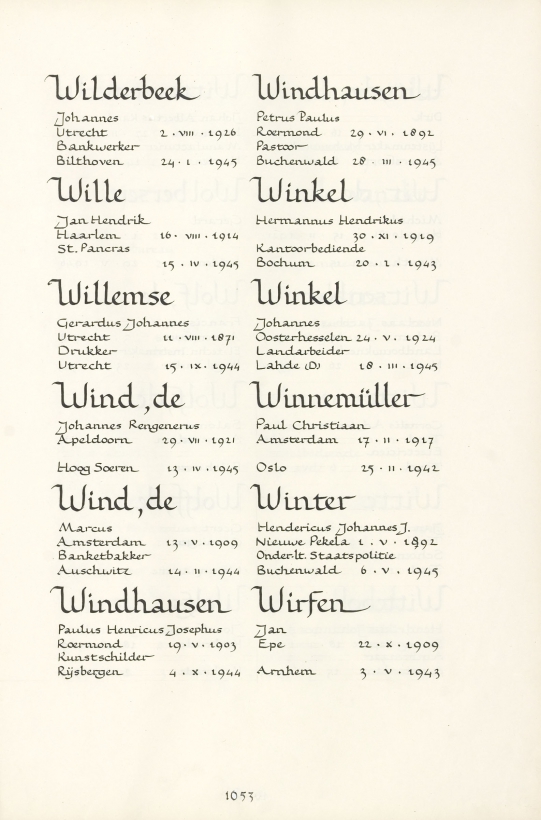 Wilderbeek
Johannes
Utrecht 2 · VIII · 1926
Bankwerker
Bilthoven 24 · I · 1945
Wille
Jan Hendrik
Haarlem 16 · VIII · 1914
St. Pancras
15 · IV · 1945
Willemse
Gerardus Johannes
Utrecht 11 · VIII · 1871
Drukker
Utrecht 15 · IX · 1944
Wind, de
Johannes Rengenerus
Apeldoorn 29 · VII · 1921
Hoog Soeren 13 · IV · 1945
Wind, de
Marcus
Amsterdam 13 · V · 1909
Banketbakker
Auschwitz 14 · II · 1944
Windhausen
Paulus Henricus Josephus
Roermond 19 · V · 1903
Kunstschilder
Rijsbergen 4 · X · 1944
Windhausen
Petrus Paulus
Roermond 29 · VI · 1892
Pastoor
Buchenwald 28 · III · 1945
Winkel
Hermannus Hendrikus
30 · XI · 1919
Kantoorbediende
Bochum 20 · I · 1943
Winkel
Johannes
Oosterhesselen 24 · V · 1924
Landarbeider
Lahde (D) 18 · III · 1945
Winnemüller
Paul Christiaan
Amsterdam 17 · II · 1917
Oslo 25 · II · 1942
Winter
Hendericus Johannes J.
Nieuwe Pekela 1 · V · 1892
Onder-lt. Staatspolitie
Buchenwald 6 · V · 1945
Wirfen
Jan
Epe 22 · X · 1909
Arnhem 3 · V · 1943
1053